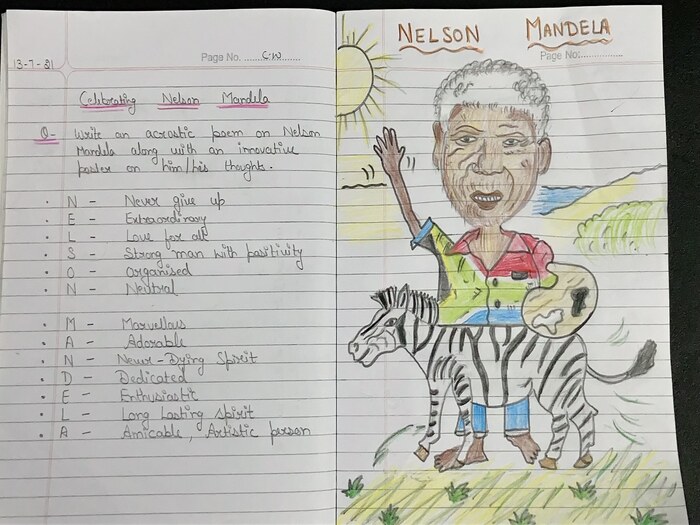 13-7-21
Page No. ......C.W......
Celebrating Nelson Mandela
Q- Write an acrostic poem on Nelson
Mandela along with an innovative
poster on him/his thoughts.
• N - Never give up
• E - Extraordinary
• L - Love for all
• S - Strong man with positivity
• O - Organised
• N - Neutral
• M - Marvellous
• A - Adorable
• N - Never-Dying Spirit
• D - Dedicated
• E - Enthusiastic
• L - Long Lasting spirit
• A - Amicable, Artistic person
NELSON MANDELA
Page No:..............